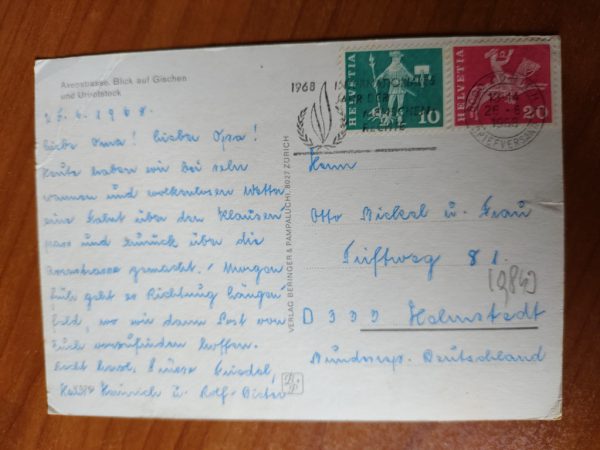 Axenstrasse. Blick auf Gitschen
und Urirotstock
25.6.1968.
Liebe Oma! Lieber Opa!
Heute haben wir bei sehr
warmen und wolkenlosen Wetter
eine Fahrt über den Klausen-
pass und zurück über die
Axenstrasse gemacht. Morgen
früh geht es Richtung Längen-
feld, wo wir dann Post von
Euch vorzufinden hoffen.
Recht herzl. Grüsse
Heinrich u. Rolf-Dieter
VERLAG BERINGER & PAMPALUCHI, 8027 ZÜRICH
1968 INTERNATIONALES
JAHR DER
MENSCHEN-
RECHTE
HELVETIA 10
HELVETIA 20
BRIEFVERSAND
Herrn
Otto Bickel u. Frau
Triftweg 81.
D 333 Helmstedt
Bundesrep. Deutschland